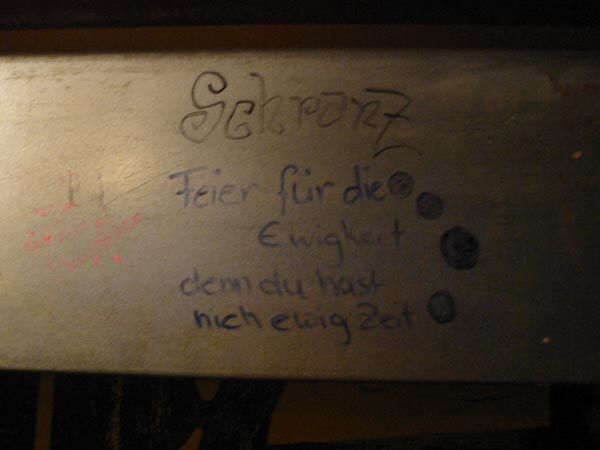 Schranz
Feier für die
Ewigkeit
denn du hast
nich ewig Zeit